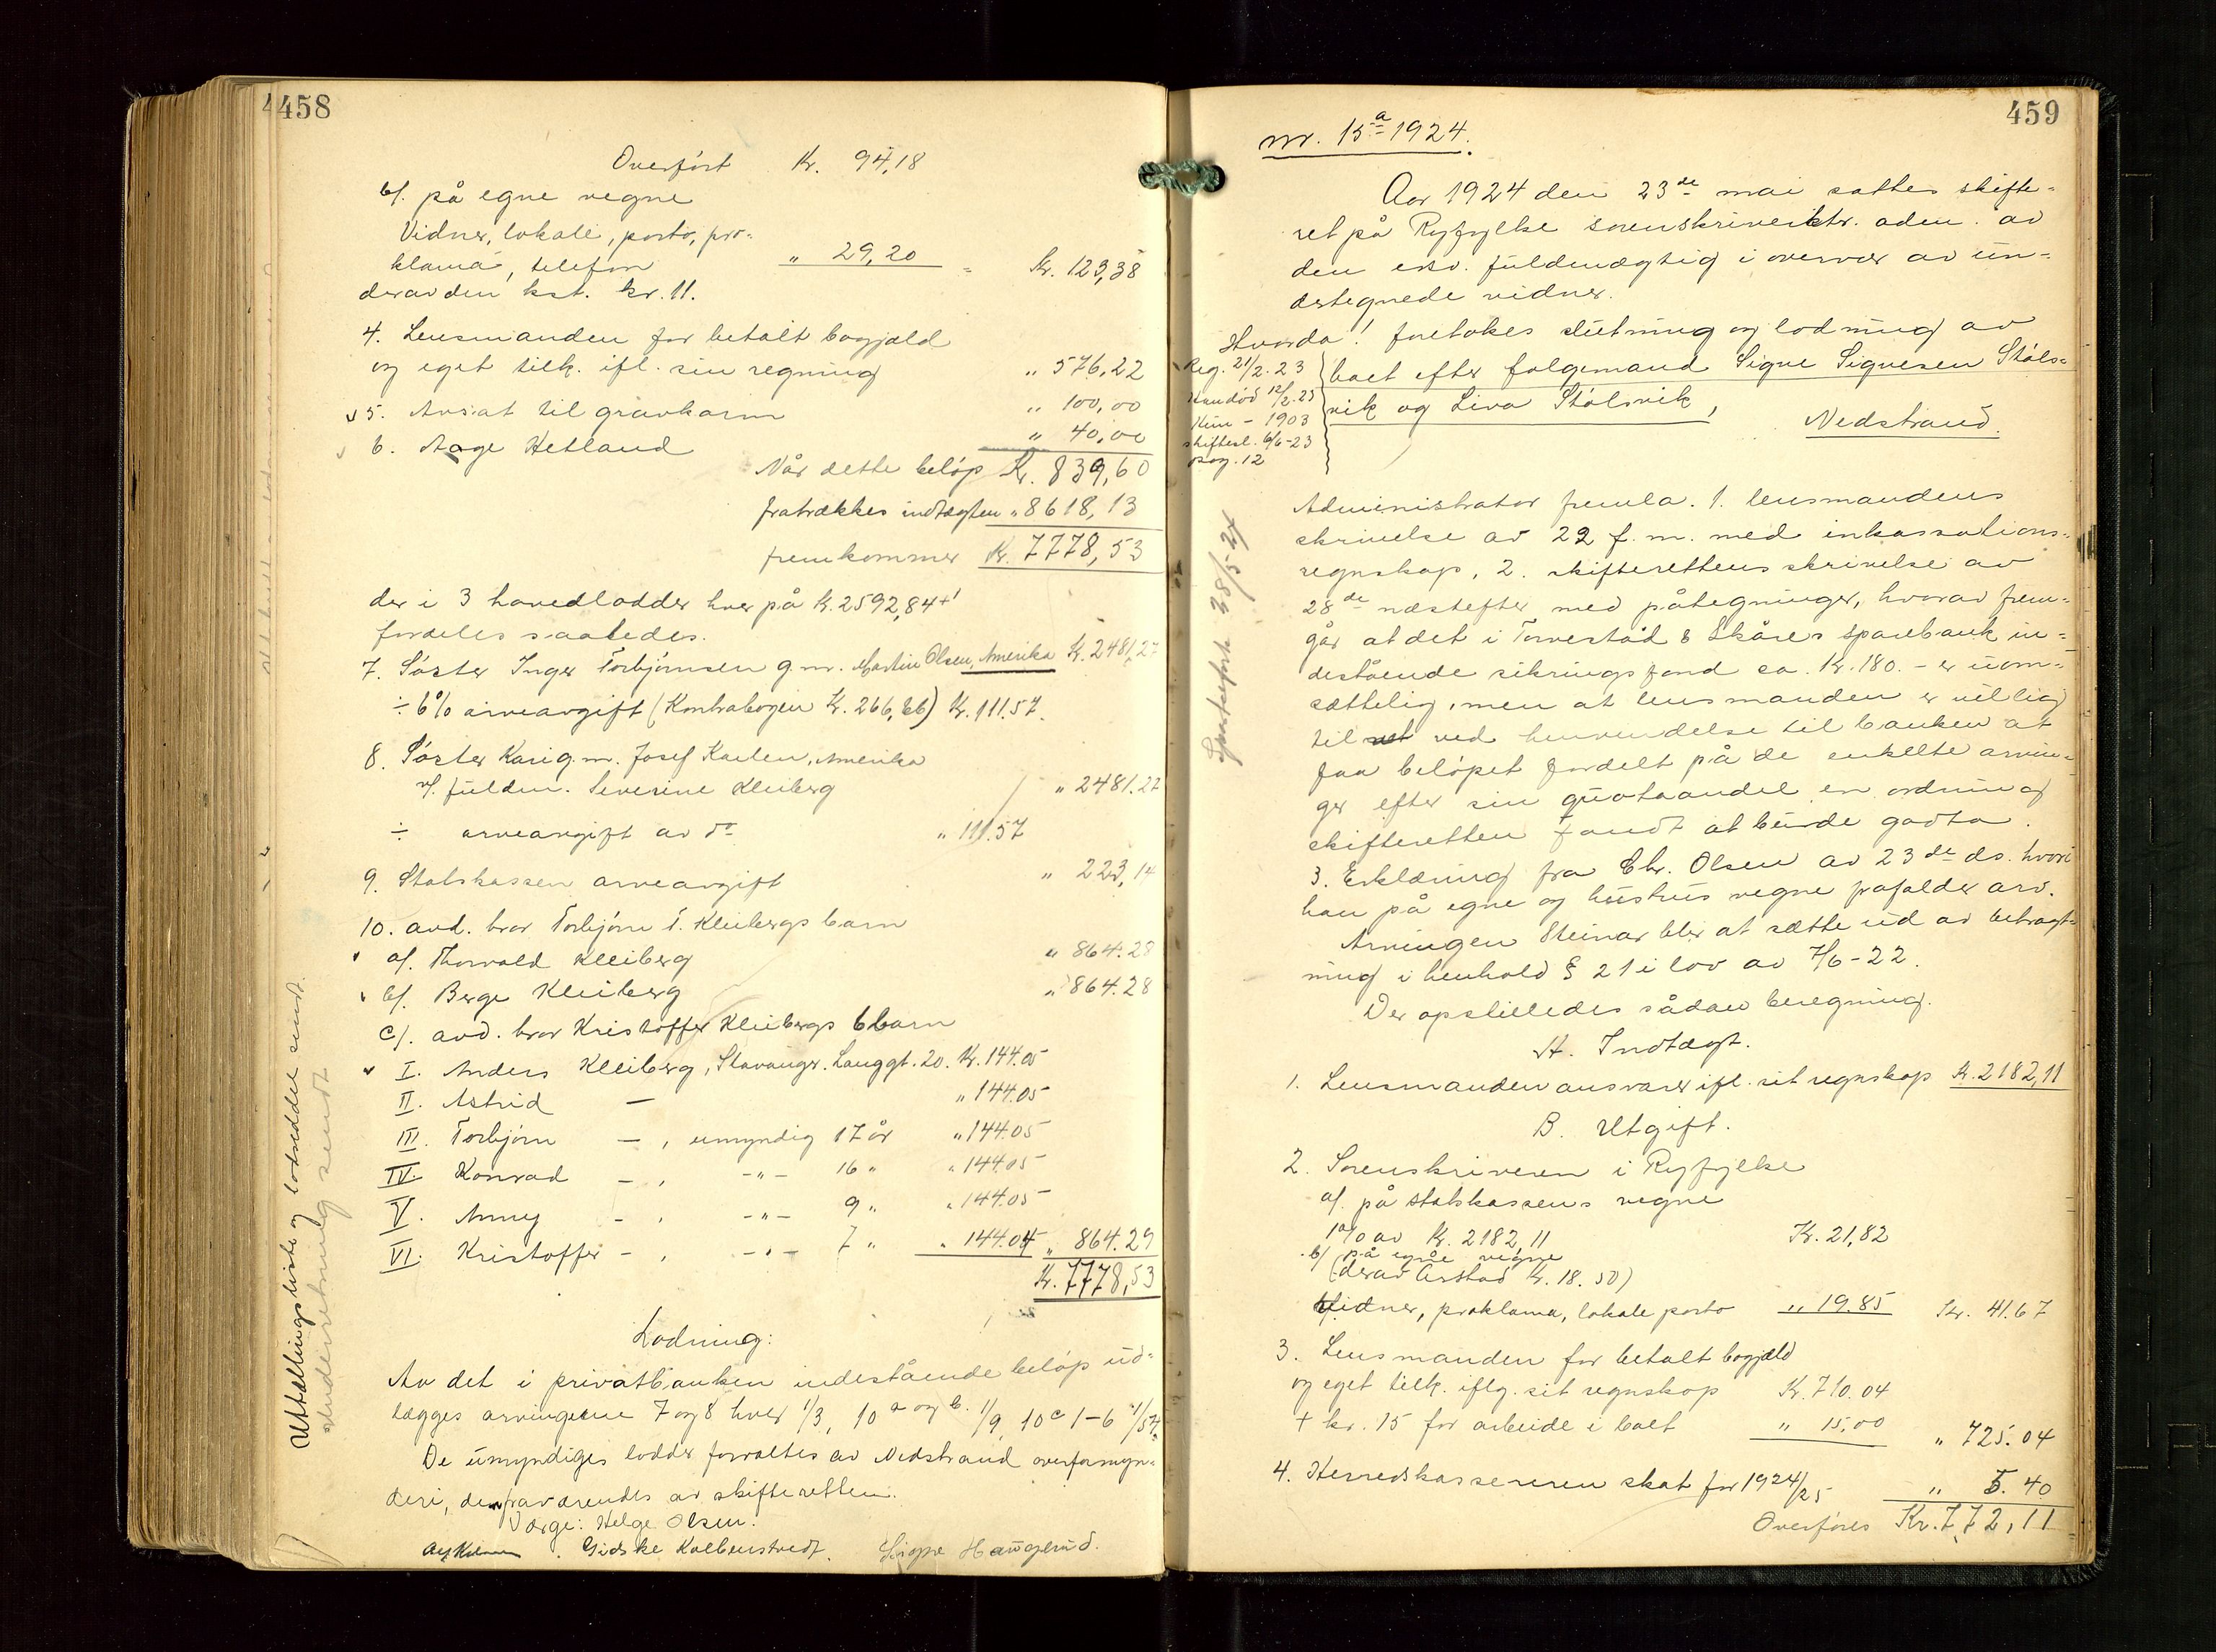 458
Overført Kr. 94,18
b/. på egne vegne
Vidner, lokale, porto, pro-
klama, telefon " 29,20 = Kr. 123,38
derav den kst. kr. 11.
4. Lensmanden for betalt bogjæld
og eget tilk. ifl. sin regning " 576,22
5. Avsat til gravkarm " 100,00
6. Aage Hetland " 40,00
Når dette beløp Kr. 839,60
fratrækkes indtægten " 8618,13
fremkommer Kr. 7778,53
der i 3 hovedlodder hver på kr. 2592,84 +1
fordeles saaledes.
7. Søster Inger Torbjørnsen g.m. Martin Olsen, Amerika Kr. 2481,27
÷ 6% arveavgift (Kontrabogen Kr. 266,86) Kr. 111.57.
8. Søster Kari g.m. Josef Kaelen, Amerika
v/. fuldm. Severine Kleiberg " 2481.27
÷ arveavgift av do " 111.57
9. Statskassen arveavgift " 223,14
10. avd. bror Torbjørn T. Kleibergs barn
a/. Thorvald Kleiberg " 864.28
b/. Berge Kleiberg " 864.28
c/. avd. bror Kristoffer Kleibergs 6 barn
I. Anders Kleiberg, Stavanger. Langgt. 20. Kr. 144.05
II. Astrid — " 144.05
III. Torbjørn — , umyndig 17 år " 144.05
IV. Konrad - , -"- 16 " " 144.05
V. Anny - , -"- 9 " " 144.05
VI. Kristoffer - , -"- 7 " " 144.04 " 864.29
Kr. 7778,53
Lodning:
Av det i privatbanken indestående beløp ud-
lægges arvingerne 7 og 8 hver 1/3, 10 a og b. 1/9, 10 c 1-6 1/54.
De umyndiges lodder forvaltes av Nedstrand overformyn-
deri, de fraværendes av skifteretten.
Værge: Helge Olsen.
Gidske Kolbenstvedt. Signe Haugerud.
Utbetalingsliste og lodseddel sendt.
Underretning sendt
459
nr. 15a 1924.
Aar 1924 den 23de mai sattes skifte-
ret på Ryfylke sorenskriverktr. adm. av
den edsv. fuldmægtig i overvær av un-
dertegnede vidner.
Hvorda! foretokes slutning og lodning av
Reg. 21/2.23
boet efter følgemand Signe Signesen Støls-
Man død 12/2.23
vik og Liva Stølsvik,
Kun - 1903
Nedstrand.
skiftesl. 6/6-23
pag. 12
Administrator fremla. 1. lensmandens
skrivelse av 22 f.m. med inkassations-
regnskap, 2. skifterettens skrivelse av
28de næstefter med påtegninger, hvorav frem-
går at det i Torvestad & Skåres sparebank in-
destående sikringsfond ca. Kr. 180.- er uom-
sættelig, men at lensmanden er villig
til ved henvendelse til banken at
faa beløpet fordelt på de enkelte arvin-
ger efter sin quotaandel en ordning
skifteretten fandt at burde godta.
3. Erklæring fra Chr. Olsen av 23de ds. hvori
han på egne og hustrus vegne frafalder arv.
Arvingen Steinar blir at sætte ud av betragt-
ning i henhold § 21 i lov av 7/6-22.
Der opstilledes sådan beregning.
A. Indtægt.
1. Lensmanden ansvarer ifl. sit regnskap Kr. 2182,11
B. Utgift.
2. Sorenskriveren i Ryfylke
a/. på statskassens vegne
1% av Kr. 2182,11 Kr. 21,82
b/ på egne vegne
(derav Arstad Kr. 18.50)
Vidner, proklama, lokale porto " 19.85 Kr. 41.67
3. Lensmanden for betalt bogjæld
og eget tilk. iflg. sit regnskap Kr. 710.04
+ kr. 15 for arbeide i boet " 15,00 " 725.04
4. Herredskassereren skat for 1924/25 " 5.40
Overføres Kr. 772,11